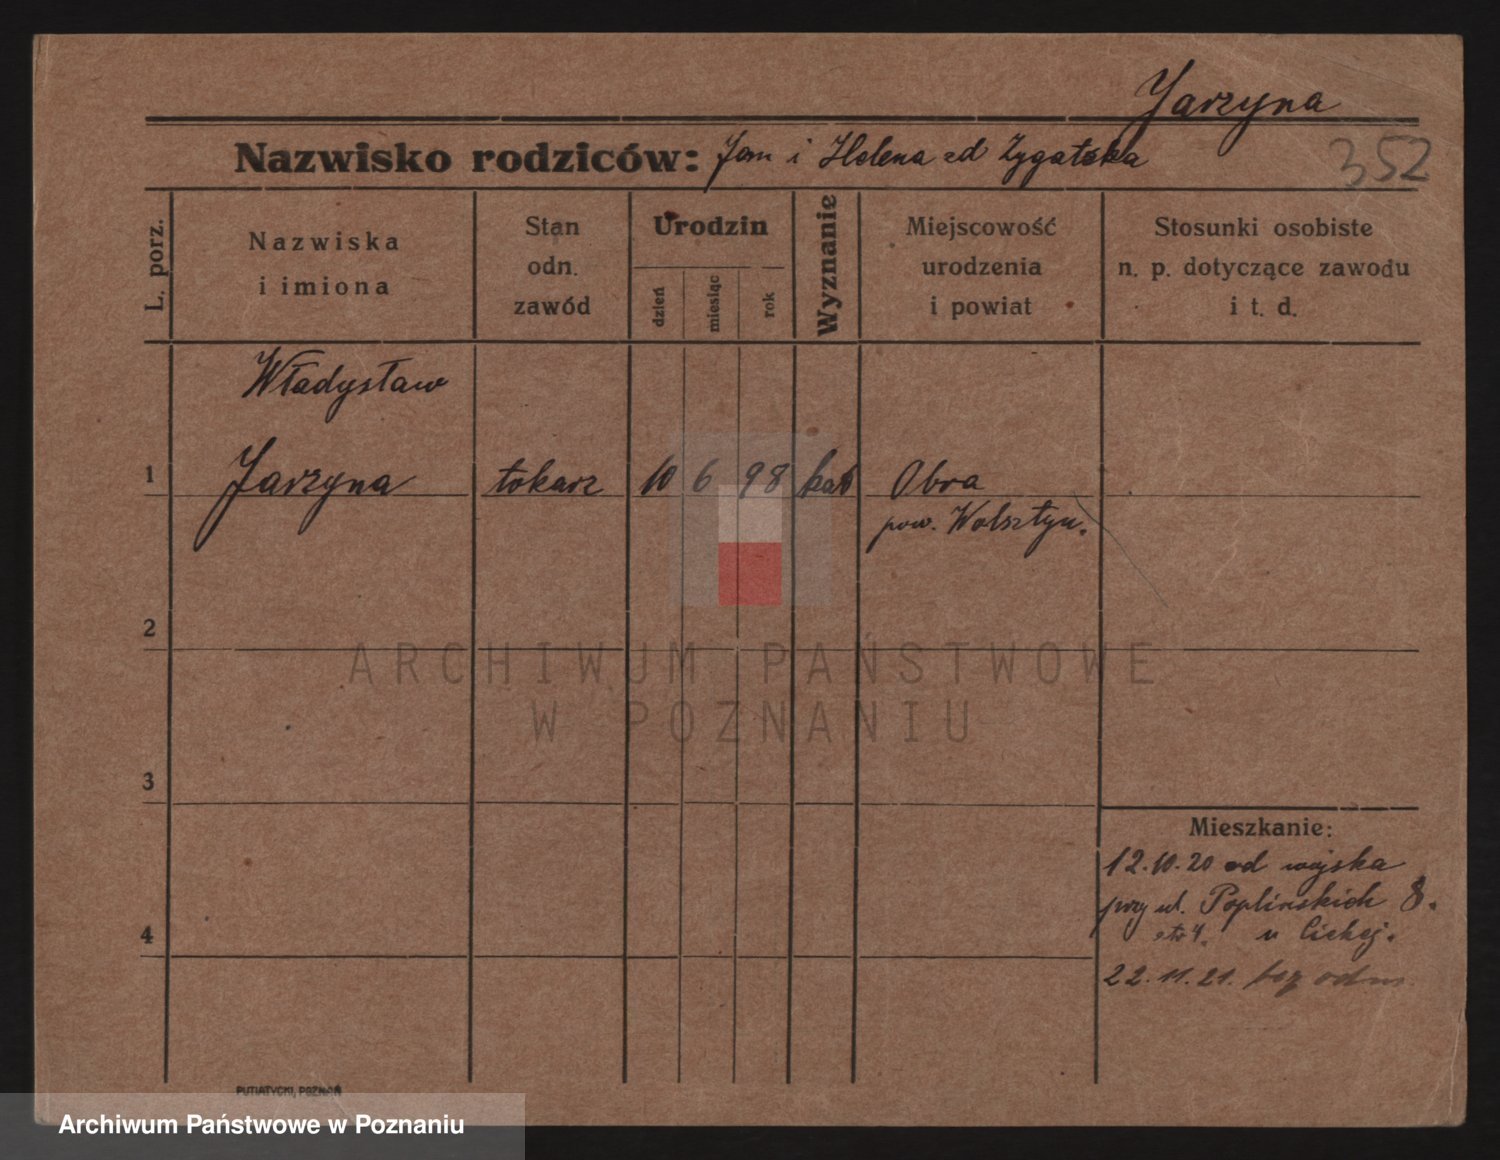 Jarzyna
Nazwisko rodziców: Jan i Helena zd Zygatska
352
L. porz.
Nazwiska
i imiona
Stan
odn.
zawód
Urodzin
dzień
miesiąc
rok
Wyznanie
Miejscowość
urodzenia
i powiat
Stosunki osobiste
n. p. dotyczące zawodu
i t. d.
Władysław
1 Jarzyna tokarz 10 6 98 kat Obra
pow. Wolsztyn.
2
ARCHIWUM PAŃSTWOWE
W POZNANIU
3
Mieszkanie:
12.10.20 od wojska
przy ul. Poplińskich 8.
u Cichej.
4
22.11.21. bez odm.
PUTIATYCKI, POZNAŃ
Archiwum Państwowe w Poznaniu